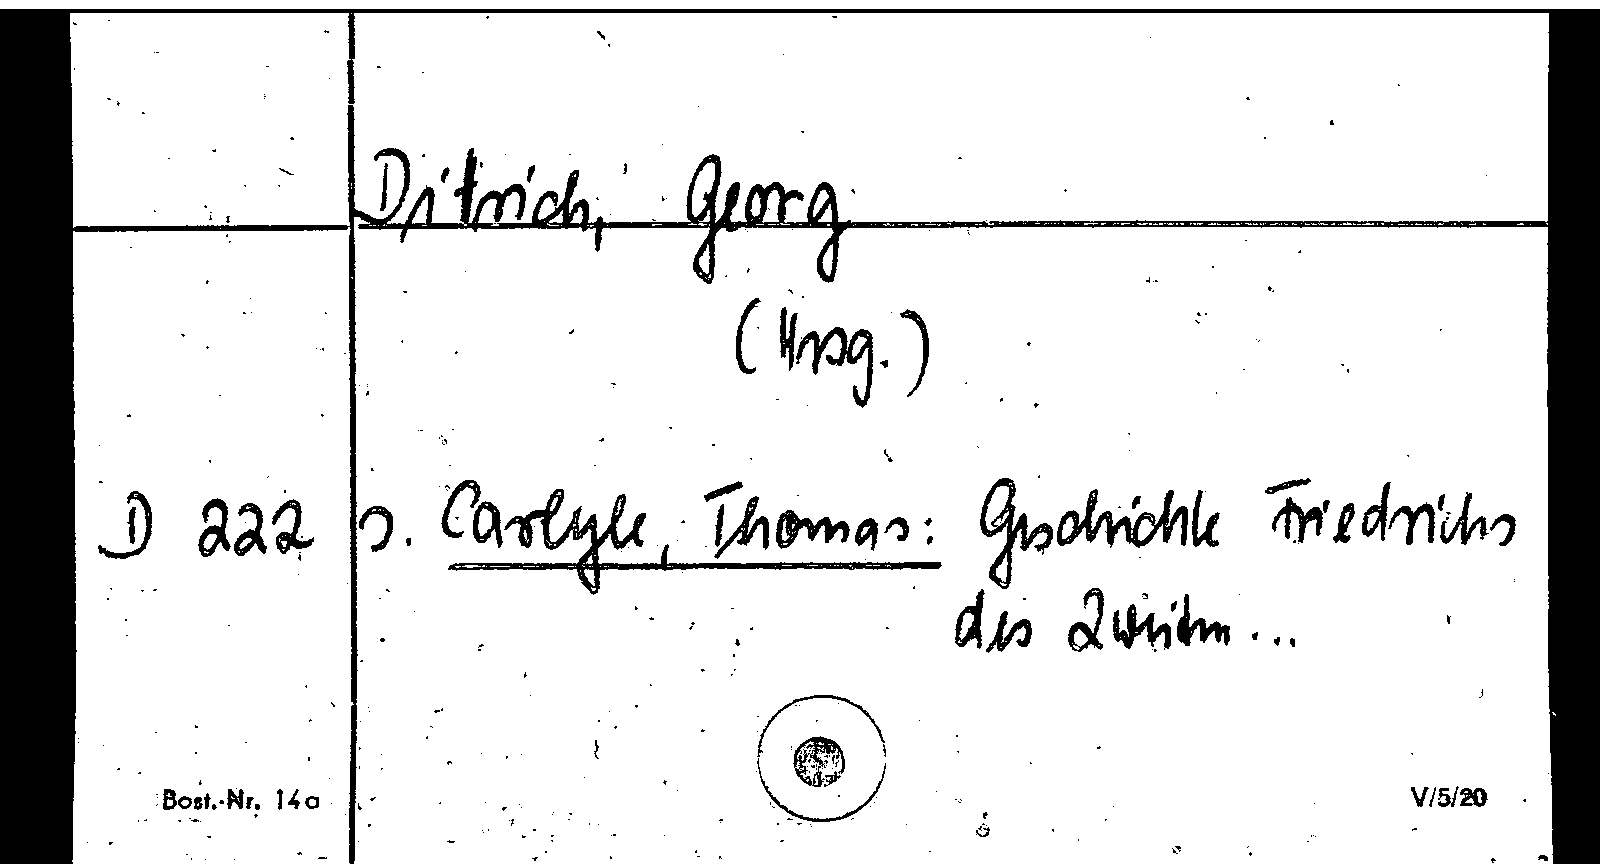 Ditrich, Georg
(Hrsg.)
D 222 s. Carlyle, Thomas: Geschichte Friedrichs
des Zweiten...
Best.-Nr. 14a V/5/20